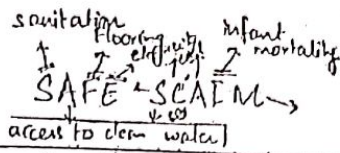 sanitation
Flooring
electricity
infant
mortality
SAFE - SCAIM
access to clean water